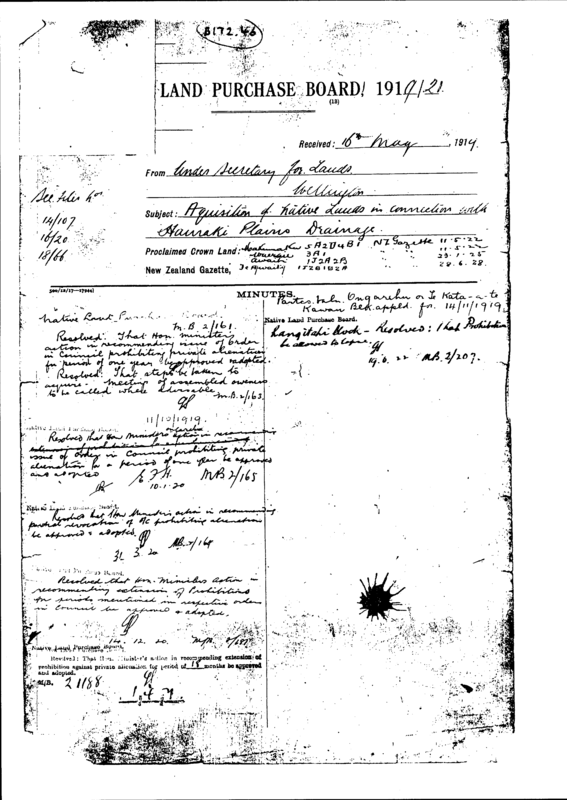 B172.46
LAND PURCHASE BOARD/ 1919/21
(13)
Received: 16th May, 1914
From Under Secretary for Lands
Wellington
Subject: Aquisition of Native Lands in connection with
Hauraki Plains Drainage.
See files
14/107
16/20
18/66
Proclaimed Crown Land: 5A2D4B1 NZ Gazette 11.5.22
3A1 11.5.22
1J2A2B
New Zealand Gazette, 1J2B1B2A 28.6.28.
MINUTES.
Native Land Purchase Board.
M.B. 2/161.
Resolved: That Hon. Minister's
action in recommending issue of Order
in Council prohibiting private alienation
for period of one year be approved & adopted.
Resolved: That steps be taken to
acquire. Meeting of assembled owners
to be called where desirable.
M.B. 2/163.
11/10/1919.
Native Land Purchase Board.
Resolved that Hon Minister's action in recommending
issue of Order in Council prohibiting private
alienation for a period of one year be approved
and adopted
10.1.20 MB 2/165
Native Land Purchase Board.
Resolved that Hon Minister's action in recommending
partial revocation of OC prohibiting alienation
be approved & adopted.
31.3.20 MB 2/168
Native Land Purchase Board.
Resolved that Hon. Minister's Action in
recommending extension of Prohibitions
for periods mentioned in respective orders
in Council be approved & adopted.
14.12.20.
Native Land Purchase Board.
Resolved: That Hon. Minister's action in recommending extension of
prohibition against private alienation for period of 18 months be approved
and adopted.
M/B. 2/188
Parties Ongarehu or Te Kata-a-te
Kawau Blk. appld. for 14/11/1919.
Native Land Purchase Board.
Rangitahi Block - Resolved: that Prohibition
be allowed to lapse.
22 M.B. 2/207.